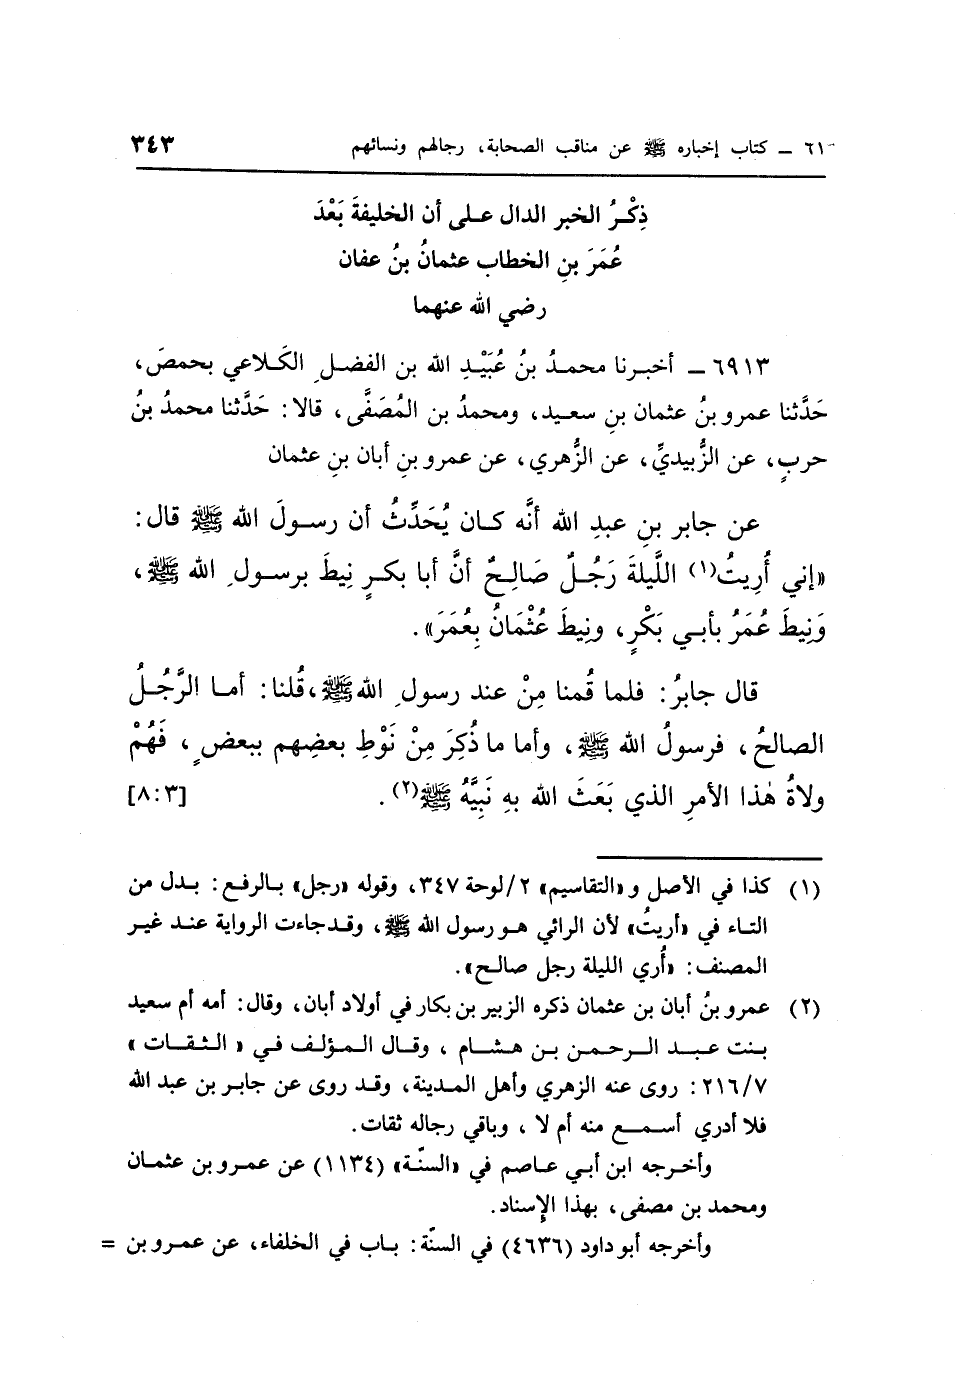 ٦١ ــ كتاب إخباره ﷺ عن مناقب الصحابة، رجالهم ونسائهم ٣٤٣
ذِكْرُ الخبر الدال على أن الخليفةَ بَعْدَ
عُمَرَ بنِ الخطاب عثمانُ بنُ عفان
رضي الله عنهما
٦٩١٣ ــ أخبرنا محمدُ بنُ عُبَيْدِ الله بن الفضلِ الكَلاعي بحمصَ،
حَدَّثنا عمرو بنُ عثمان بنِ سعيد، ومحمدُ بن المُصَفَّى، قالا: حَدَّثنا محمدُ بنُ
حربٍ، عن الزُّبيديِّ، عن الزُّهري، عن عمرو بنِ أبان بنِ عثمان
عن جابر بنِ عبدِ الله أنَّه كان يُحَدِّثُ أن رسولَ الله ﷺ قال:
«إني أُرِيتُ(١) اللَّيلةَ رَجُلٌ صَالِحٌ أنَّ أبا بكرٍ نِيطَ برسولِ الله ﷺ،
وَنِيطَ عُمَرُ بأبي بَكْرٍ، ونِيطَ عُثْمَانُ بِعُمَرَ».
قال جابرُ: فلما قُمنا مِنْ عند رسولِ الله ﷺ، قُلنا: أما الرَّجُلُ
الصالحُ، فرسولُ الله ﷺ، وأما ما ذُكِرَ مِنْ نَوْطِ بعضِهم ببعضٍ، فَهُمْ
ولاةُ هٰذا الأمرِ الذي بَعَثَ الله بهِ نَبِيَّهُ ﷺ(٢). [٨:٣]
(١) كذا في الأصل و«التقاسيم» ٢/لوحة ٣٤٧، وقوله «رجل» بالرفع: بدل من
التاء في «أريتُ» لأن الرائي هو رسول الله ﷺ، وقد جاءت الرواية عند غير
المصنف: «أُري الليلة رجل صالح».
(٢) عمرو بنُ أبان بن عثمان ذكره الزبير بن بكار في أولاد أبان، وقال: أمه أم سعيد
بنت عبد الرحمن بن هشام، وقال المؤلف في «الثقات»
٢١٦/٧: روى عنه الزهري وأهل المدينة، وقد روى عن جابر بن عبد الله
فلا أدري أسمع منه أم لا، وباقي رجاله ثقات.
وأخرجه ابن أبي عاصم في «السنّة» (١١٣٤) عن عمرو بن عثمان
ومحمد بن مصفى، بهذا الإسناد.
وأخرجه أبو داود (٤٦٣٦) في السنّة: باب في الخلفاء، عن عمرو بن =